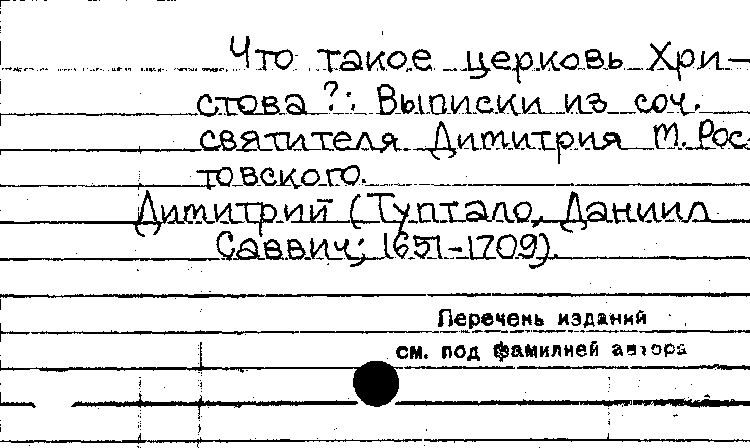 Что такое церковь Хри-
стова?: Выписки из соч.
святителя Димитрия м. Рос-
товского.
Димитрий (Туптало, Даниил
Саввич; 1651-1709).
Перечень изданий
см. под фамилией автора